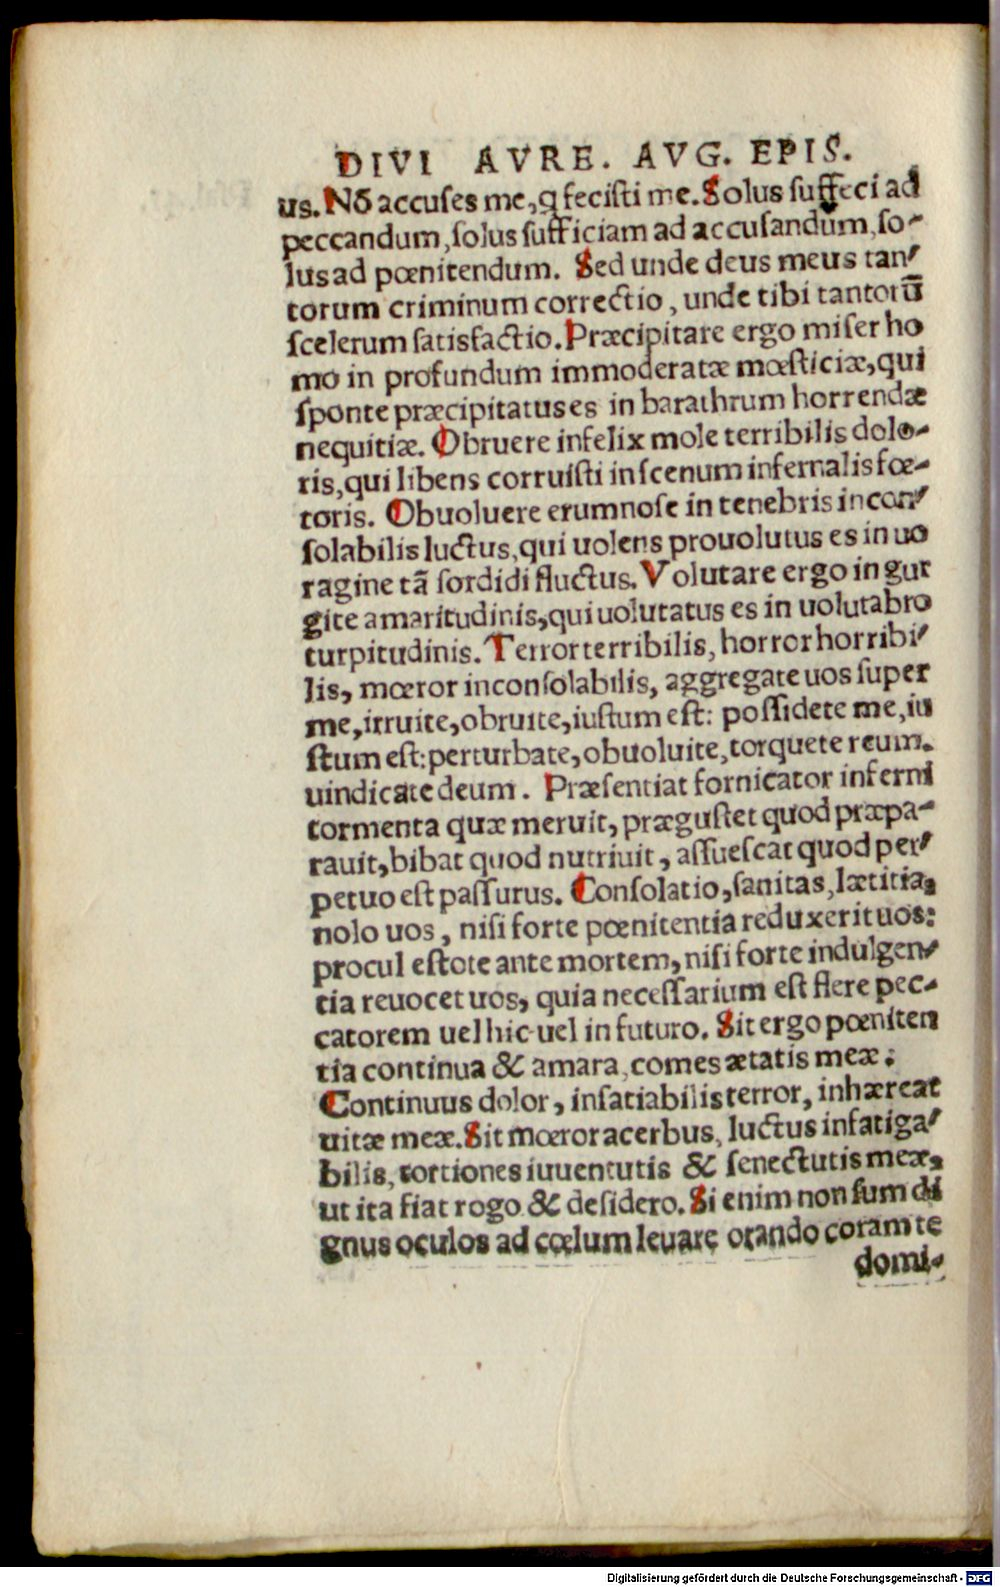 DIVI AVRE. AVG. EPIS.
us. Nõ accuses me, q fecisti me. Solus suffeci ad
peccandum, solus sufficiam ad accusandum, so-
lus ad pœnitendum. Sed unde deus meus tan-
torum criminum correctio, unde tibi tantorũ
scelerum satisfactio. Præcipitare ergo miser ho
mo in profundum immoderatæ mœsticiæ, qui
sponte præcipitatus es in barathrum horrendæ
nequitiæ. Obruere infelix mole terribilis dolo-
ris, qui libens corruisti in scenum infernalis fœ-
toris. Obuoluere erumnose in tenebris incon-
solabilis luctus, qui uolens prouolutus es in uo
ragine tã sordidi fluctus. Volutare ergo in gur
gite amaritudinis, qui uolutatus es in uolutabro
turpitudinis. Terror terribilis, horror horribi-
lis, mœror inconsolabilis, aggregate uos super
me, irruite, obruite, iustum est: possidete me, iu
stum est: perturbate, obuoluite, torquete reum.
uindicate deum. Præsentiat fornicator inferni
tormenta quæ meruit, prægustet quod præpa-
rauit, bibat quod nutriuit, assuescat quod per-
petuo est passurus. Consolatio, sanitas, lætitia,
nolo uos, nisi forte pœnitentia reduxerit uos:
procul estote ante mortem, nisi forte indulgen-
tia reuocet uos, quia necessarium est flere pec-
catorem uel hic uel in futuro. Sit ergo pœniten
tia continua & amara, comes ætatis meæ:
Continuus dolor, insatiabilis terror, inhæreat
uitæ meæ. Sit mœror acerbus, luctus infatiga-
bilis, tortiones iuuentutis & senectutis meæ,
ut ita fiat rogo & desidero. Si enim non sum di
gnus oculos ad cœlum leuare orando coram te
domi-
Digitalisierung gefördert durch die Deutsche Forschungsgemeinschaft - DFG